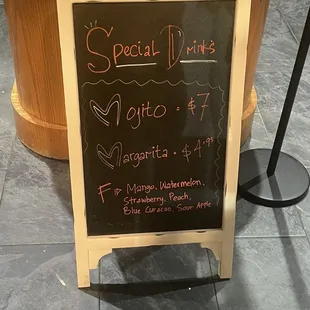 Special Drinks
Mojito • $7
Margarita • $4.95
Flv: Mango, Watermelon,
Strawberry, Peach,
Blue Curacao, Sour Apple